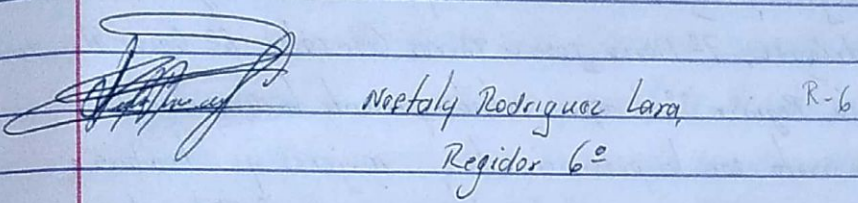 Neftaly Rodriguez Lara, R-6
Regidor 6º